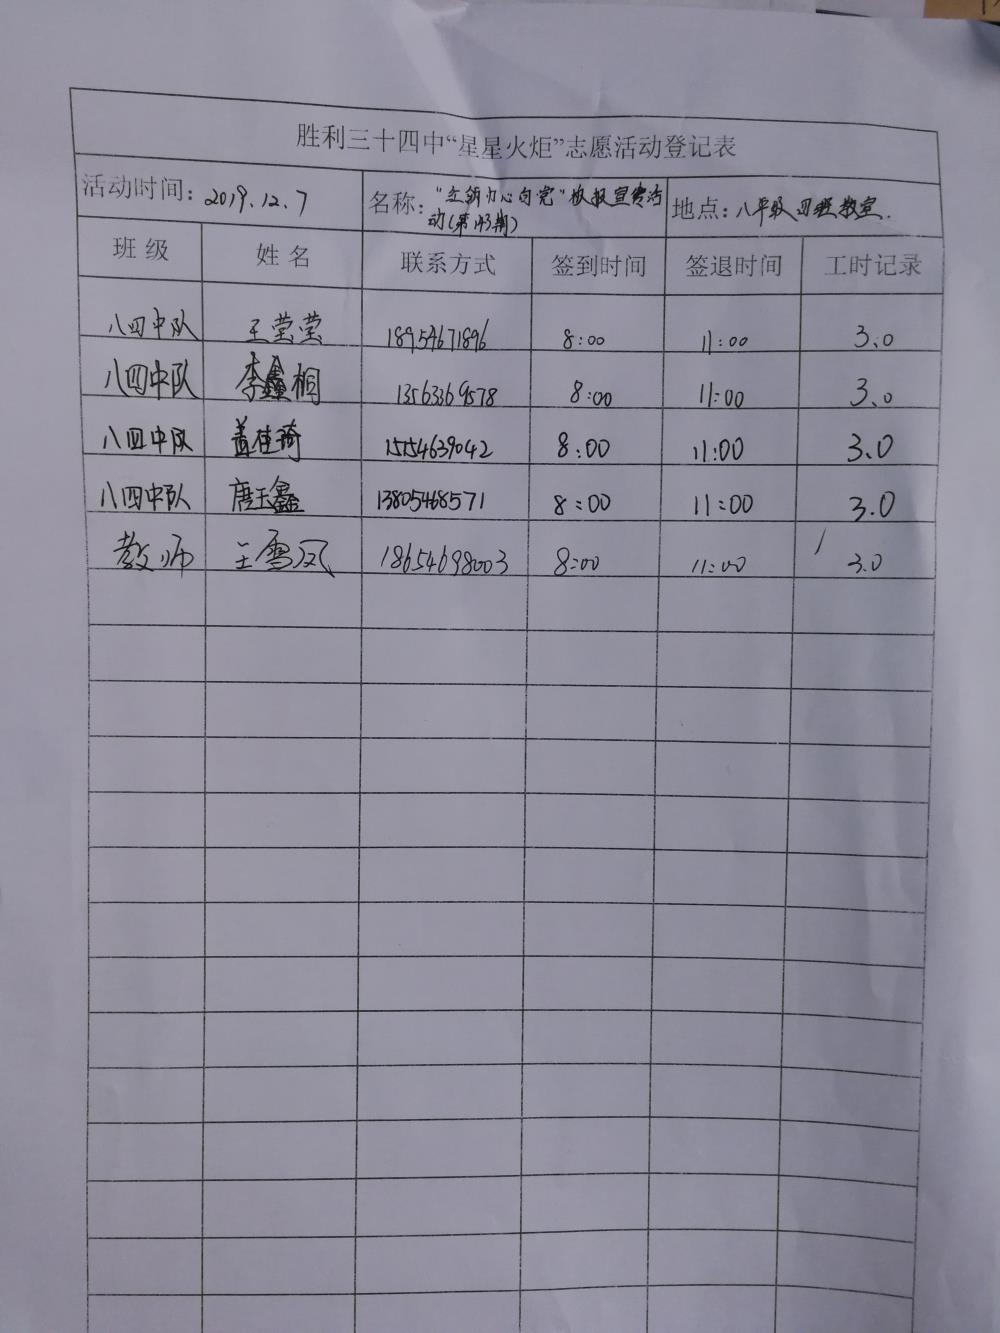 胜利三十四中“星星火炬”志愿活动登记表
活动时间：2019.12.7 名称：“立领巾心向党”板报宣传活动(第143期) 地点：八年级四班教室.
班级 姓名 联系方式 签到时间 签退时间 工时记录
八四中队 王莹莹 18954671896 8:00 11:00 3.0
八四中队 李鑫桐 13563369578 8:00 11:00 3.0
八四中队 盖佳琦 15154639042 8:00 11:00 3.0
八四中队 唐玉鑫 13805468571 8:00 11:00 3.0
教师 王雪凤 18654698003 8:00 11:00 3.0